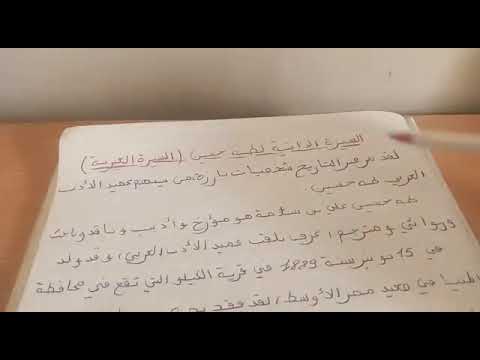 السيرة الذاتية لطه حسين (السيرة الغيرية)
لقد عرف التاريخ شخصيات بارزة من بينهم عميد الأدب
العربي طه حسين
طه حسين علي بن سلامة هو مؤرخ وأديب وناقد وباحث
وروائي ومترجم، عرف بلقب عميد الأدب العربي، وقد ولد
في 15 نونبر سنة 1889 في قرية الكيلو التي تقع في محافظة
المنيا في صعيد مصر الأوسط، لقد فقد